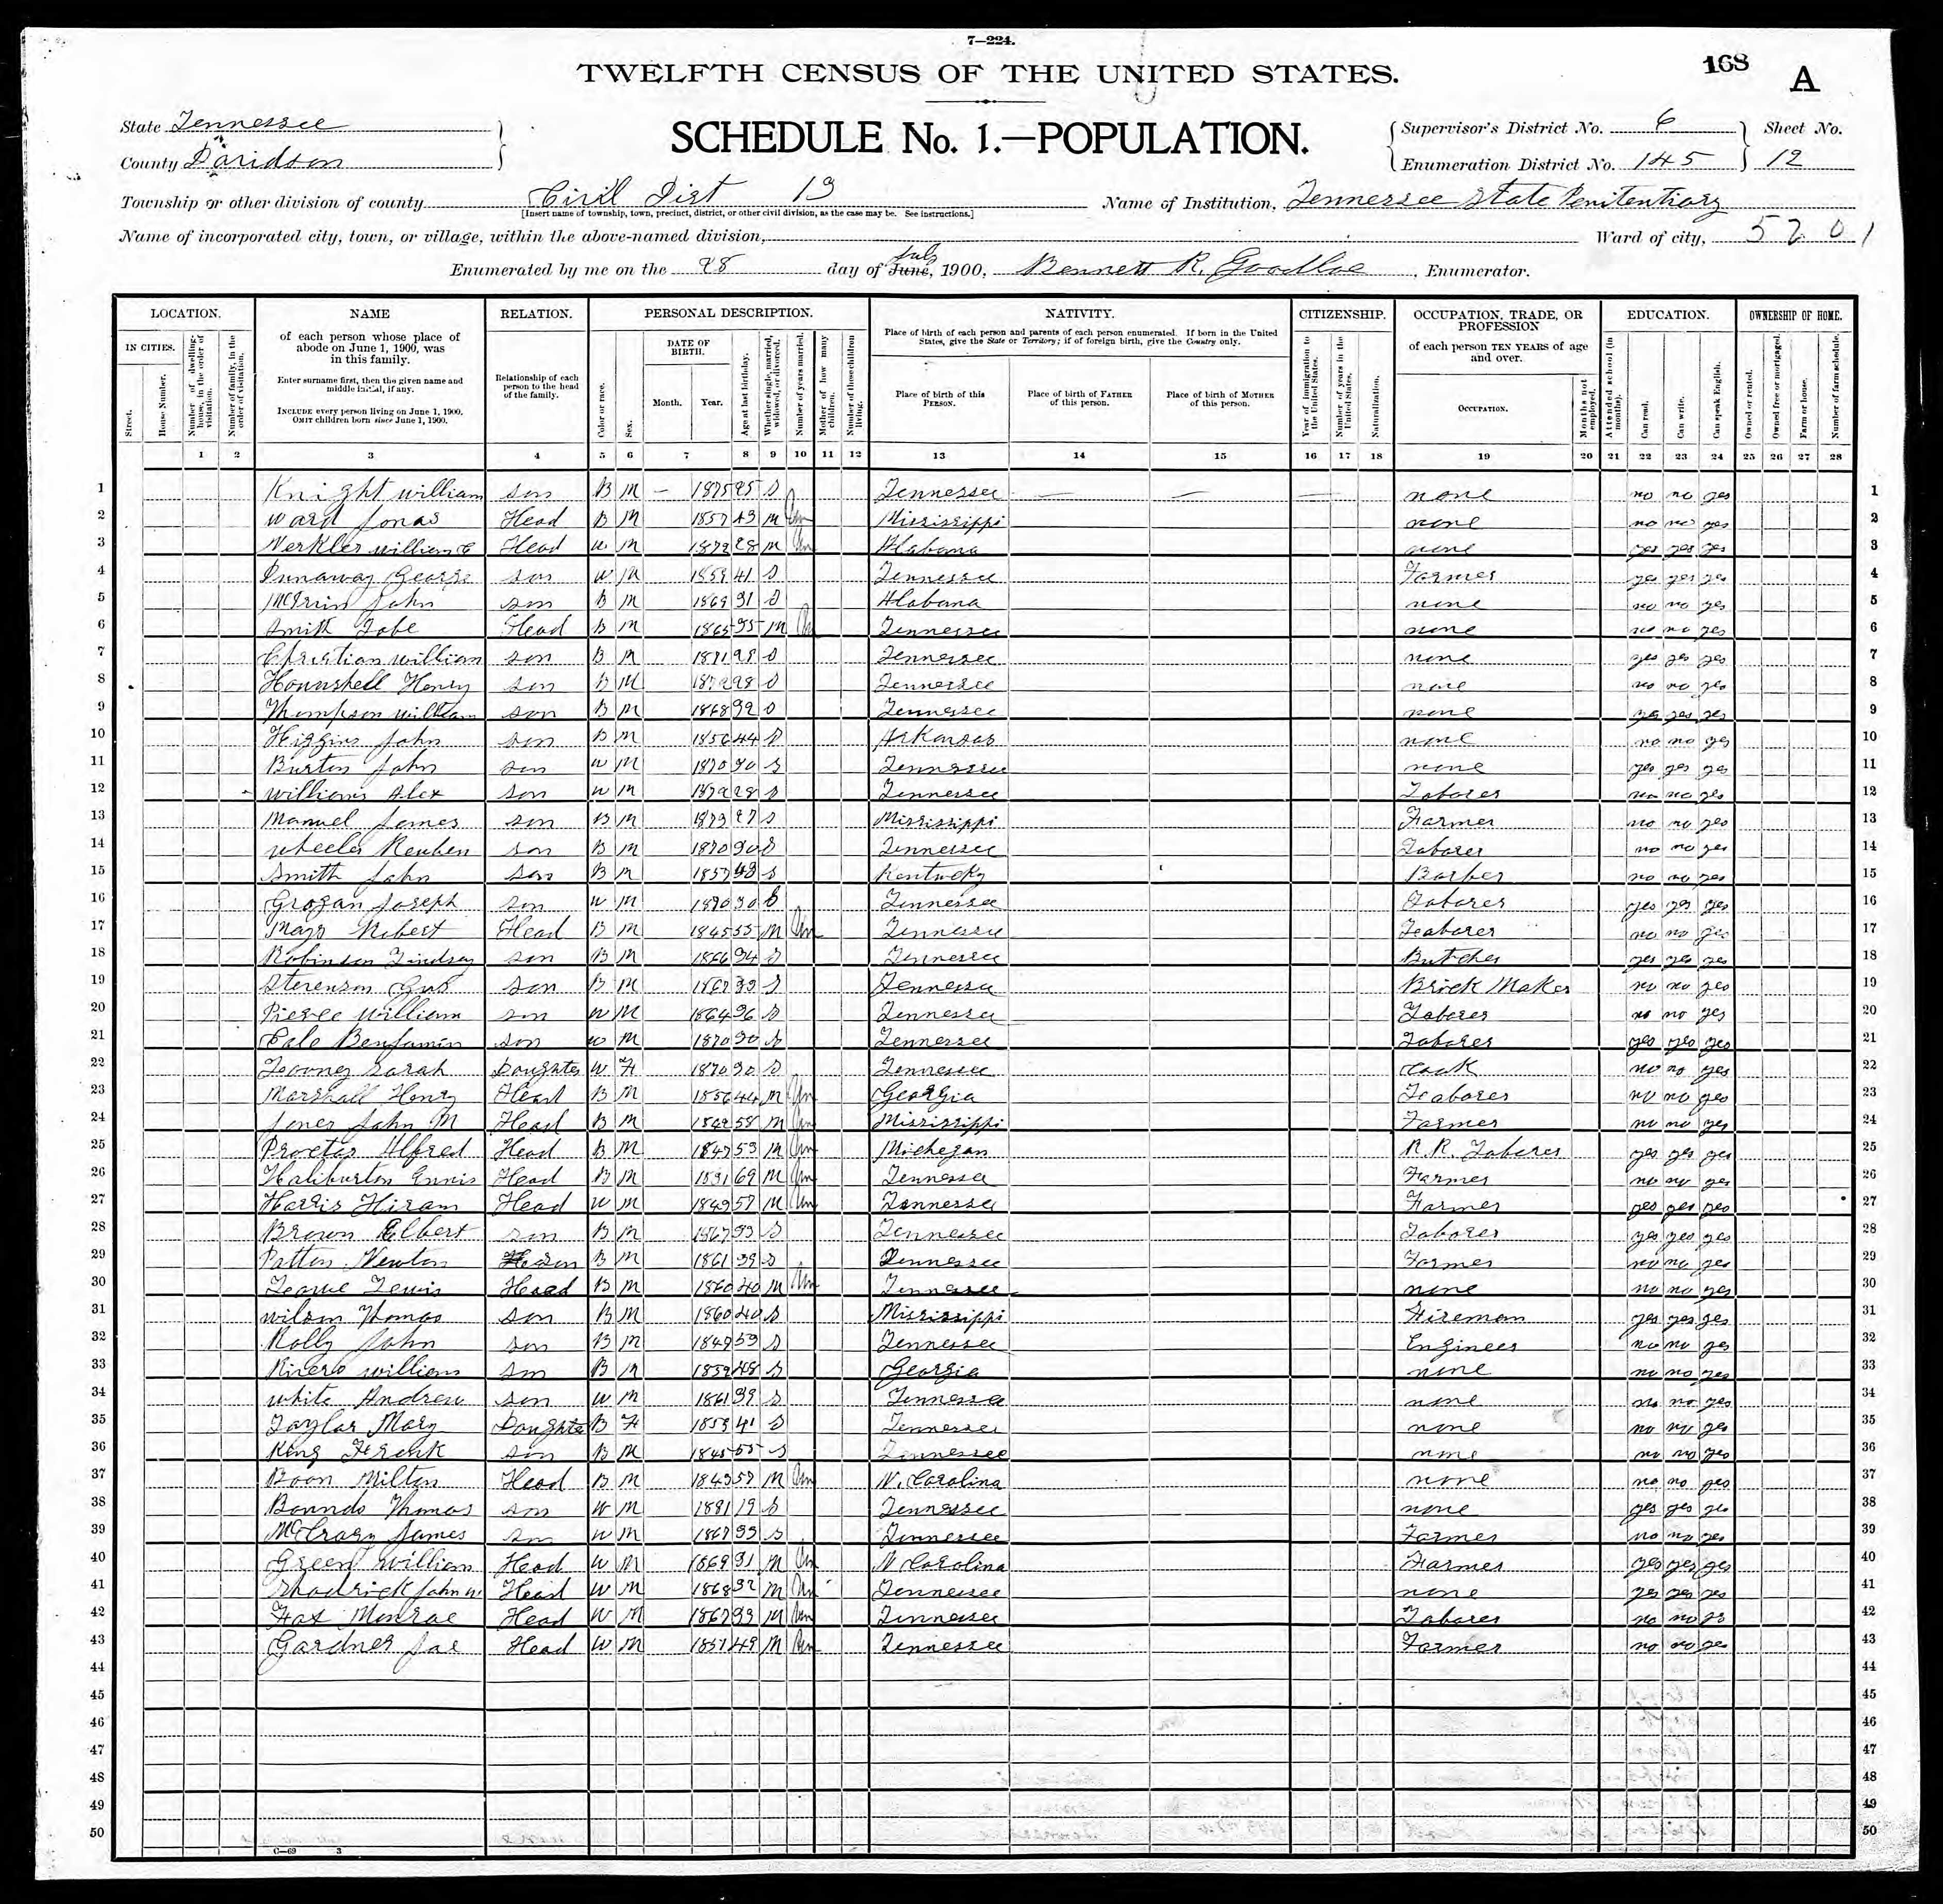 7—224.
TWELFTH CENSUS OF THE UNITED STATES.
168 A
State Tennessee
County Davidson
SCHEDULE No. 1.—POPULATION.
Supervisor's District No. 6
Enumeration District No. 145
Sheet No.
12
Township or other division of county Civil Dist 13
[Insert name of township, town, precinct, district, or other civil division, as the case may be. See instructions.]
Name of Institution, Tennessee State Penitentiary
Name of incorporated city, town, or village, within the above-named division,
Ward of city, 5201
Enumerated by me on the 28 day of June, July 1900, Bennett R. Goodloe, Enumerator.
LOCATION. NAME RELATION. PERSONAL DESCRIPTION. NATIVITY. CITIZENSHIP. OCCUPATION, TRADE, OR PROFESSION EDUCATION. OWNERSHIP OF HOME.
IN CITIES.
Street.
House Number.
Number of dwelling-house, in the order of visitation.
Number of family, in the order of visitation.
of each person whose place of abode on June 1, 1900, was in this family.
Enter surname first, then the given name and middle initial, if any.
INCLUDE every person living on June 1, 1900.
OMIT children born since June 1, 1900.
Relationship of each person to the head of the family.
Color or race.
Sex.
DATE OF BIRTH.
Month. Year.
Age at last birthday.
Whether single, married, widowed, or divorced.
Number of years married.
Mother of how many children.
Number of these children living.
Place of birth of each person and parents of each person enumerated. If born in the United States, give the State or Territory; if of foreign birth, give the Country only.
Place of birth of this PERSON.
Place of birth of FATHER of this person.
Place of birth of MOTHER of this person.
Year of immigration to the United States.
Number of years in the United States.
Naturalization.
of each person TEN YEARS of age and over.
OCCUPATION.
Months not employed.
Attended school (in months).
Can read.
Can write.
Can speak English.
Owned or rented.
Owned free or mortgaged.
Farm or house.
Number of farm schedule.
1 2 3 4 5 6 7 8 9 10 11 12 13 14 15 16 17 18 19 20 21 22 23 24 25 26 27 28
1 Knight William son B M — 1875 25 S Tennessee — — — none no no yes 1
2 Ward Jonas Head B M 1857 43 M Un Mississippi none no no yes 2
3 William E Head W M 1872 28 M Un Alabama none yes yes yes 3
4 George son W M 1859 41 S Tennessee Farmer yes yes yes 4
5 John son B M 1869 31 S Alabama none no no yes 5
6 Smith Head B M 1865 35 M Un Tennessee none no no yes 6
7 Christian William son B M 1871 28 S Tennessee none yes yes yes 7
8 Hounshell Henry son B M 1872 28 S Tennessee none no no yes 8
9 Thompson William son B M 1868 32 S Tennessee none yes yes yes 9
10 Higgins John son B M 1856 44 S Arkansas none no no yes 10
11 Burton John son W M 1870 30 S Tennessee none yes yes yes 11
12 Williams Alex son W M 1872 28 S Tennessee Laborer no no yes 12
13 Manuel James son B M 1873 27 S Mississippi Farmer no no yes 13
14 Wheeler Reuben son B M 1870 30 S Tennessee Laborer no no yes 14
15 Smith John son B M 1857 43 S Kentucky Barber no no yes 15
16 Grogan Joseph son W M 1870 30 S Tennessee Laborer yes yes yes 16
17 Mays Robert Head B M 1845 55 M Un Tennessee Laborer no no yes 17
18 Robinson Lindsey son B M 1866 34 S Tennessee Butcher yes yes yes 18
19 Stevenson Gus son B M 1867 33 S Tennessee Brick Maker no no yes 19
20 Pierce William son W M 1864 36 S Tennessee Laborer no no yes 20
21 Benjamin son W M 1870 30 S Tennessee Laborer yes yes yes 21
22 Sarah Daughter W F 1870 30 S Tennessee Cook no no yes 22
23 Marshall Henry Head B M 1856 44 M Un Georgia Laborer no no yes 23
24 Jones John M Head B M 1842 58 M Un Mississippi Farmer no no yes 24
25 Procter Alfred Head B M 1847 53 M Un Michegan R. R. Laborer yes yes yes 25
26 Haliburton Ennis Head B M 1831 69 M Un Tennessee Farmer no no yes 26
27 Harris Hiram Head W M 1843 57 M Un Tennessee Farmer yes yes yes 27
28 Brown Elbert son B M 1867 33 S Tennessee Laborer yes yes yes 28
29 Patton Newton son B M 1861 39 S Tennessee Farmer no no yes 29
30 Lewis Head B M 1860 40 M Un Tennessee none no no yes 30
31 Wilson Thomas son B M 1860 40 S Mississippi Fireman yes yes yes 31
32 Rolly John son B M 1847 53 S Tennessee Engineer no no yes 32
33 Rivers William son B M 48 S Georgia none no no yes 33
34 White Andrew son W M 1861 39 S Tennessee none no no yes 34
35 Taylor Mary Daughter B F 1859 41 S Tennessee none no no yes 35
36 King Frank son B M 1845 55 S Tennessee none no no yes 36
37 Boon Milton Head B M 1843 57 M Un N. Carolina none no no yes 37
38 Bounds Thomas son W M 1881 19 S Tennessee none yes yes yes 38
39 McCrary James son W M 1867 33 S Tennessee Farmer no no yes 39
40 Green William Head W M 1869 31 M Un N Carolina Farmer yes yes yes 40
41 Rhodrick John W Head W M 1868 32 M Un Tennessee none yes yes yes 41
42 Fox Monroe Head W M 1867 33 M Un Tennessee Laborer no no yes 42
43 Gardner Jas Head W M 1851 49 M Un Tennessee Farmer no no yes 43
44 44
45 45
46 46
47 47
48 48
49 49
50 50
C—69 3